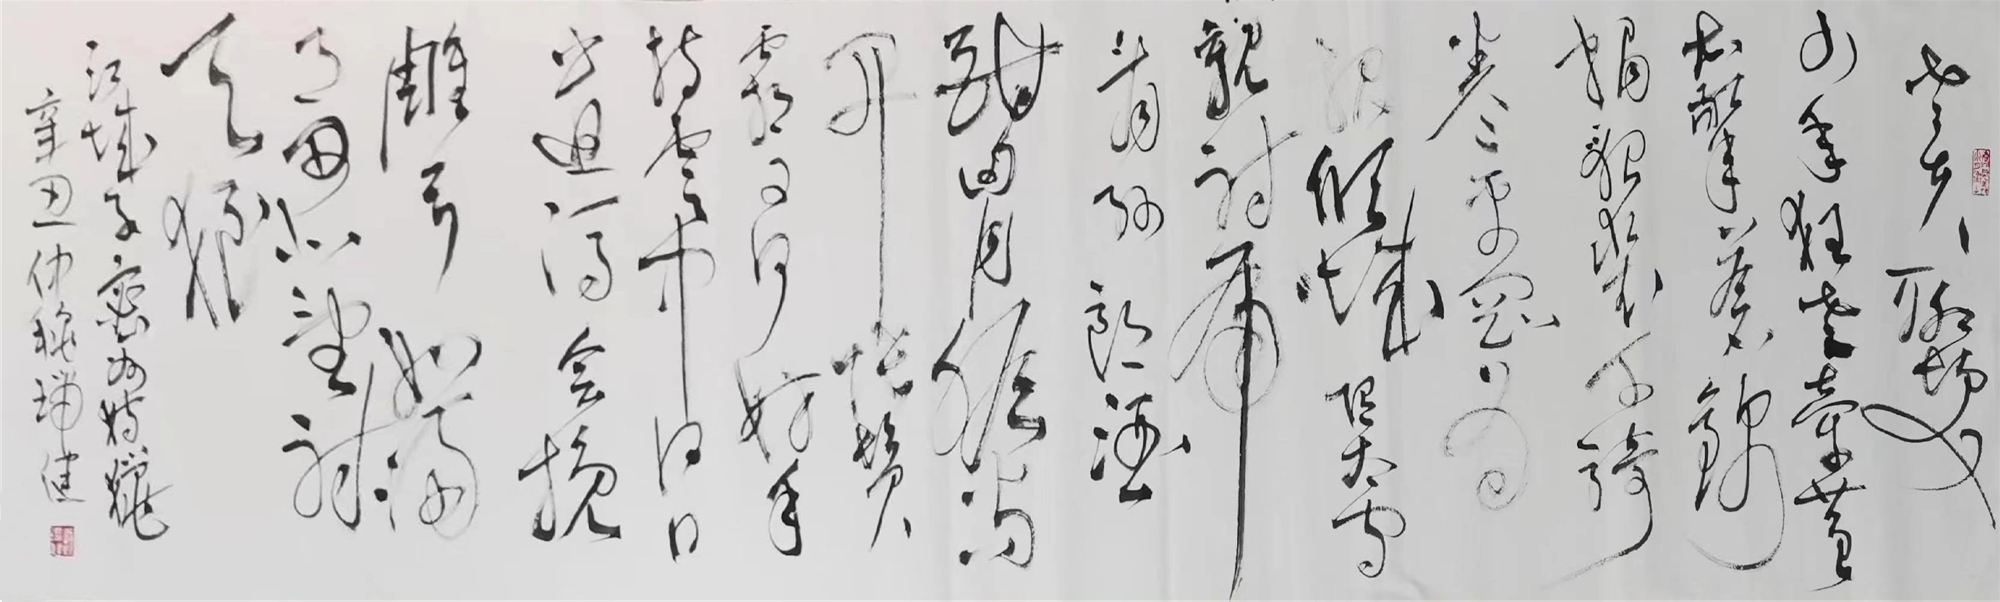 老夫聊發
少年狂左牽黃
右擎蒼錦
帽貂裘千騎
卷平岡為
報傾城隨太守
親射虎
看孫郎酒
酣胸膽尚
開鬢
霜又何妨
持雲中何日
遣馮会挽
雕弓如滿
月西北望射
天狼
江城子密州獵
辛丑仲秋瑞健